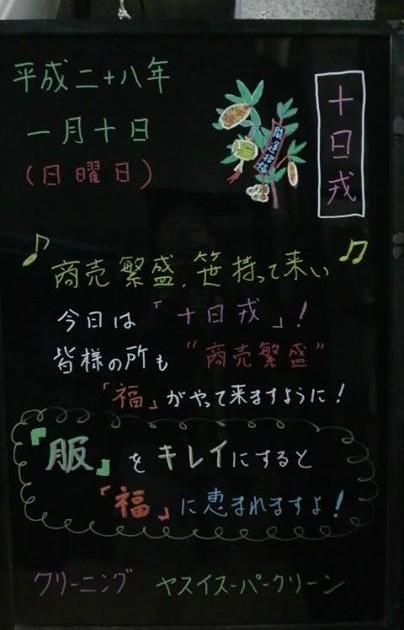 平成二十八年
一月十日
(日曜日)
十日戎
開運招福
♪商売繁盛.笹持って来い♫
今日は「十日戎」!
皆様の所も"商売繁盛"
「福」がやって来ますように!
『服』をキレイにすると
「福」に恵まれますよ!
クリーニング ヤスイスーパークリーン